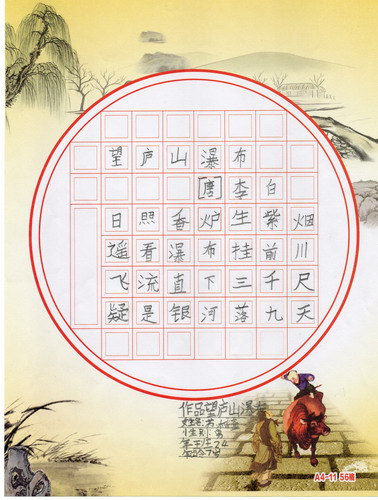 望庐山瀑布
[唐]李白
日照香炉生紫烟
遥看瀑布挂前川
飞流直下三千尺
疑是银河落九天
作品望庐山瀑布
姓名
性别
年龄7岁
A4-11 56格